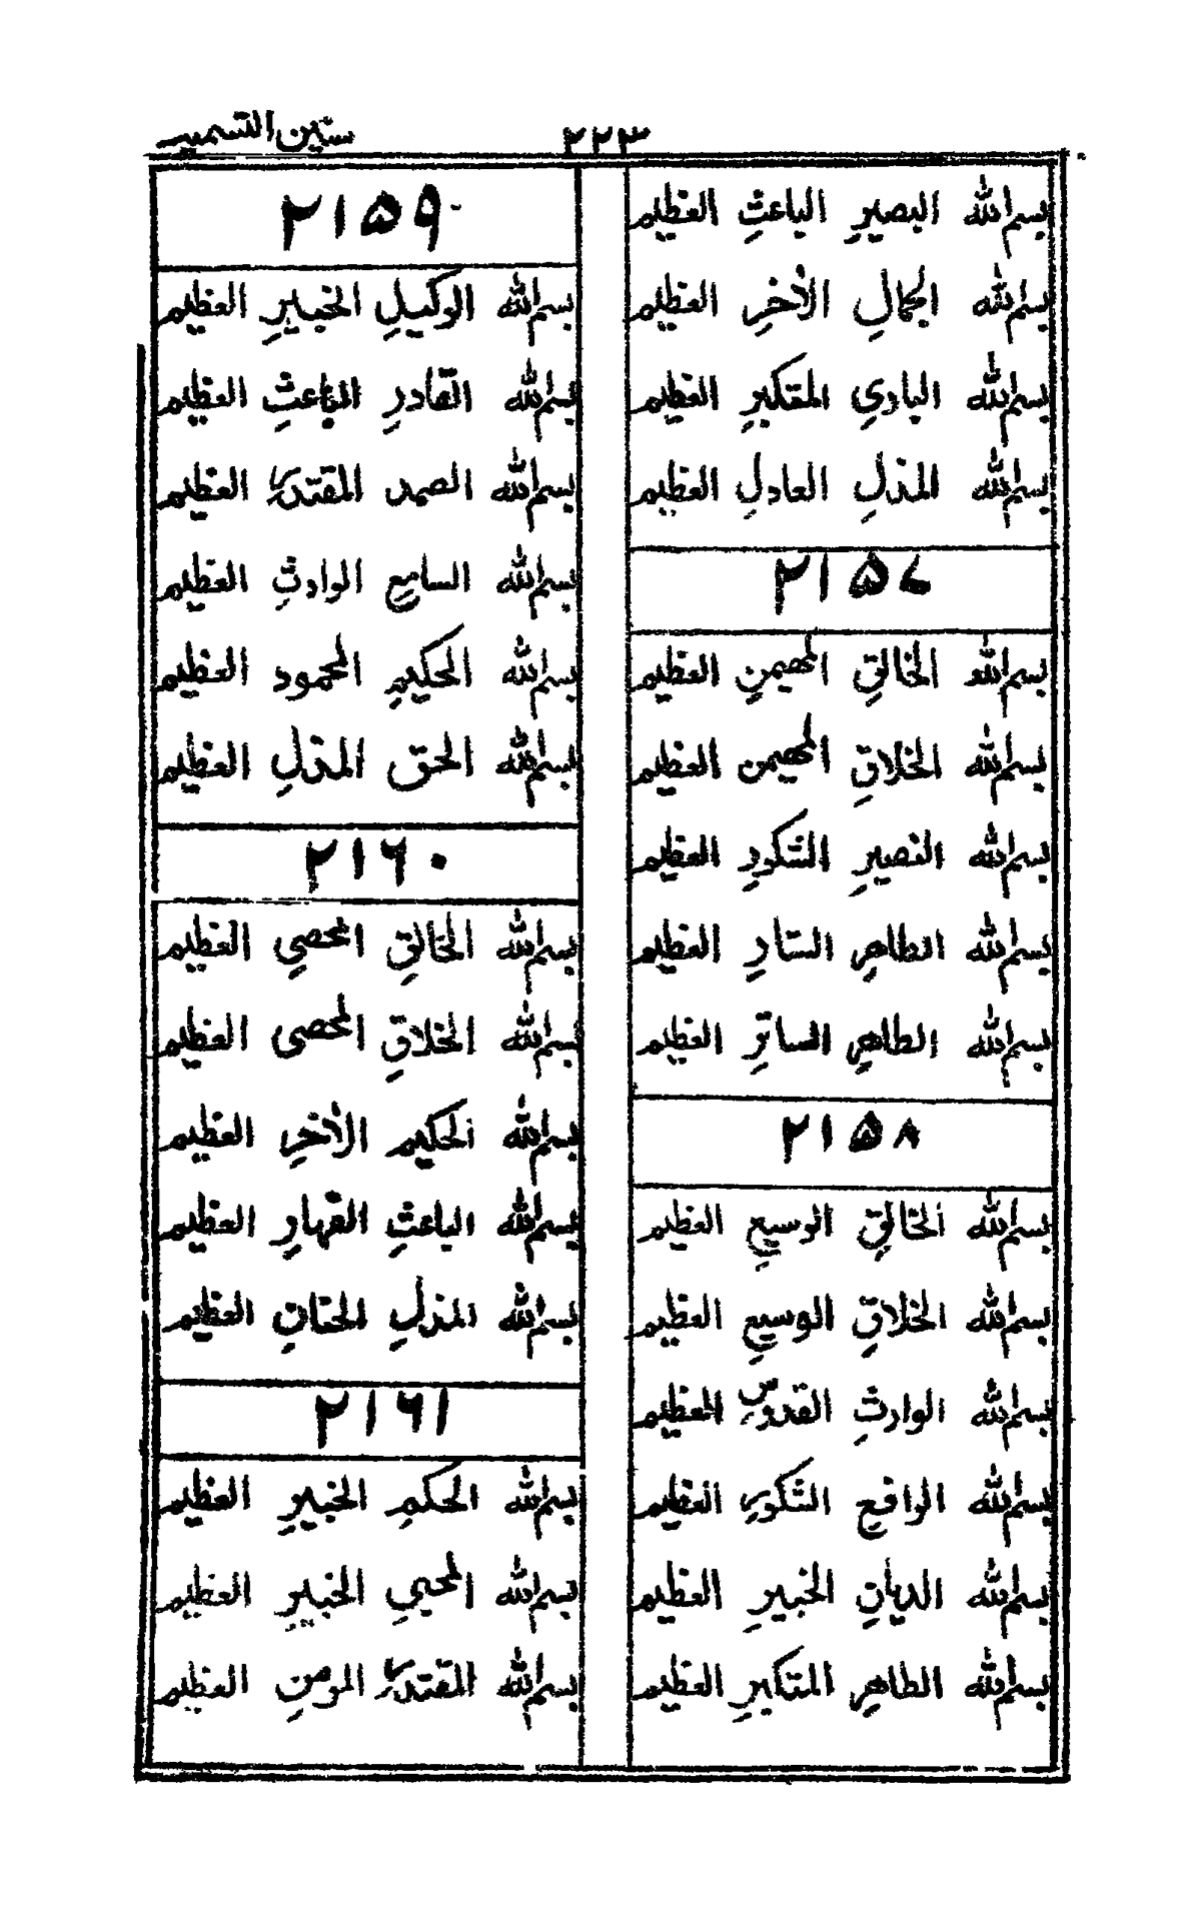 ٢٢٣
سنين التسميه
بسم الله البصيرِ الباعثِ العظيم
بسم الله الجمالِ الأخرِ العظيم
بسم الله البادیِ المتکبرِ العظيم
بسم الله المذلِ العادلِ العظيم
٢١٥٧
بسم الله الخالقِ المهيمنِ العظيم
بسم الله الخلاقِ المهيمن العظيم
بسم الله النصيرِ الشكورِ العظيم
بسم الله الطاهرِ الستارِ العظيم
بسم الله الطاهرِ الساترِ العظيم
٢١٥٨
بسم الله الخالقِ الوسيعِ العظيم
بسم الله الخلاقِ الوسيعِ العظيم
بسم الله الوارثِ القدوسِ العظيم
بسم الله الواقعِ الشكورِ العظيم
بسم الله الديانِ الخبيرِ العظيم
بسم الله الطاهرِ المتكبرِ العظيم
٢١٥٩
بسم الله الوكيلِ الخبيرِ العظيم
بسم الله القادرِ الباعثِ العظيم
بسم الله الصمد المقتدرِ العظيم
بسم الله السامعِ الوارثِ العظيم
بسم الله الحكيمِ المحمود العظيم
بسم الله الحق المذلِ العظيم
٢١٦٠
بسم الله الخالقِ المحصیِ العظيم
بسم الله الخلاقِ المحصی العظيم
بسم الله الحكيم الأخرِ العظيم
بسم الله الباعثِ القهارِ العظيم
بسم الله المذلِ الحنانِ العظيم
٢١٦١
بسم الله الحكمِ الخبيرِ العظيم
بسم الله المحيیِ الخبيرِ العظيم
بسم الله المقتدرِ المومنِ العظيم